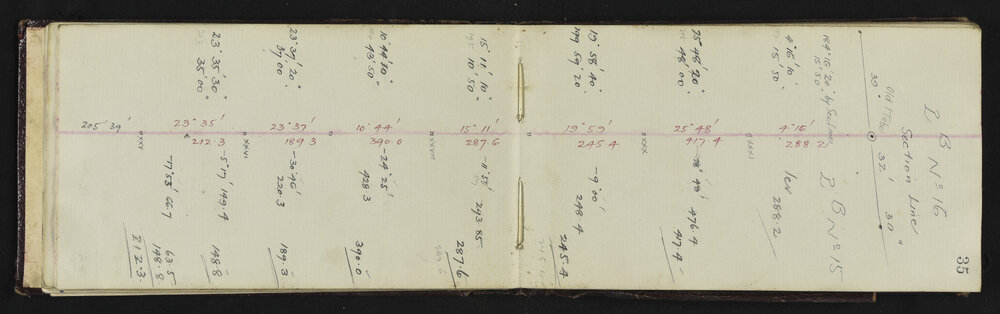 35
L B Nº 16
Section Line
Old Trav
30° 32' 30"
L B Nº 15
184° 16' 20" by Sections
15' 50"
4° 16' 10"
15' 50"
4° 16'
288.2
lev 288.2
XXXI
25° 48' 20"
48' 00"
25° 48'
417.4
476.4
417.4
XXX
19° 58' 40"
199 59' 20"
19° 59'
245.4
-9° 00' 248.4
245.4
15° 11' 10"
195 10' 50"
15° 11'
287.6
-11° 53' 293.85
287.6
XXVII
10° 44' 10"
43' 50"
10° 44'
390.0
-24° 25' 428.3
390.0
23° 37' 20"
37' 00"
23° 37'
189.3
-30° 46' 220.3
189.3
XXVI
23° 35' 30"
203 35' 00"
23° 35'
212.3
-5° 7' 149.4
148.8
-17° 53' 66.7
63.5
148.8
212.3
XXV
205° 39'